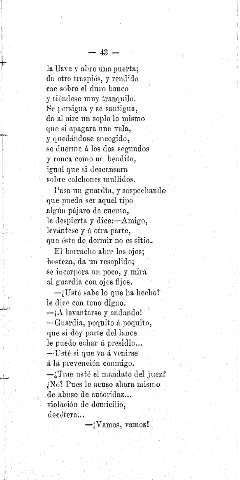 — 43 —
la llave y abre una puerta;
da otro traspiés, y rendido
cae sobre el duro banco
y tiéndese muy tranquilo.
Se persigna y se santigua,
da al aire un soplo lo mismo
que si apagara una vela,
y quedándose encogido,
se duerme á los dos segundos
y ronca como un bendito,
igual que si descansara
sobre colchones mullidos.
Pasa un guardia, y sospechando
que pueda ser aquel tipo
algún pájaro de cuenta,
le despierta y dice:—Amigo,
levántese y á otra parte,
que éste de dormir no es sitio.
El borracho abre los ojos;
bosteza, da un resoplido;
se incorpora un poco, y mira
al guardia con ojos fijos.
—¿Usté sabe lo que ha hecho?
le dice con tono digno.
—¡A levantarse y andando!
—Guardia, poquito á poquito,
que si doy parte del lance
le puedo echar á presidio...
—Usté sí que va á venirse
á la prevención conmigo.
—¿Trae usté el mandato del juez?
¿No! Pues le acuso ahora mismo
de abuso de autoridaz...
violación de domicilio,
decétera...
—¡Vamos, vamos!